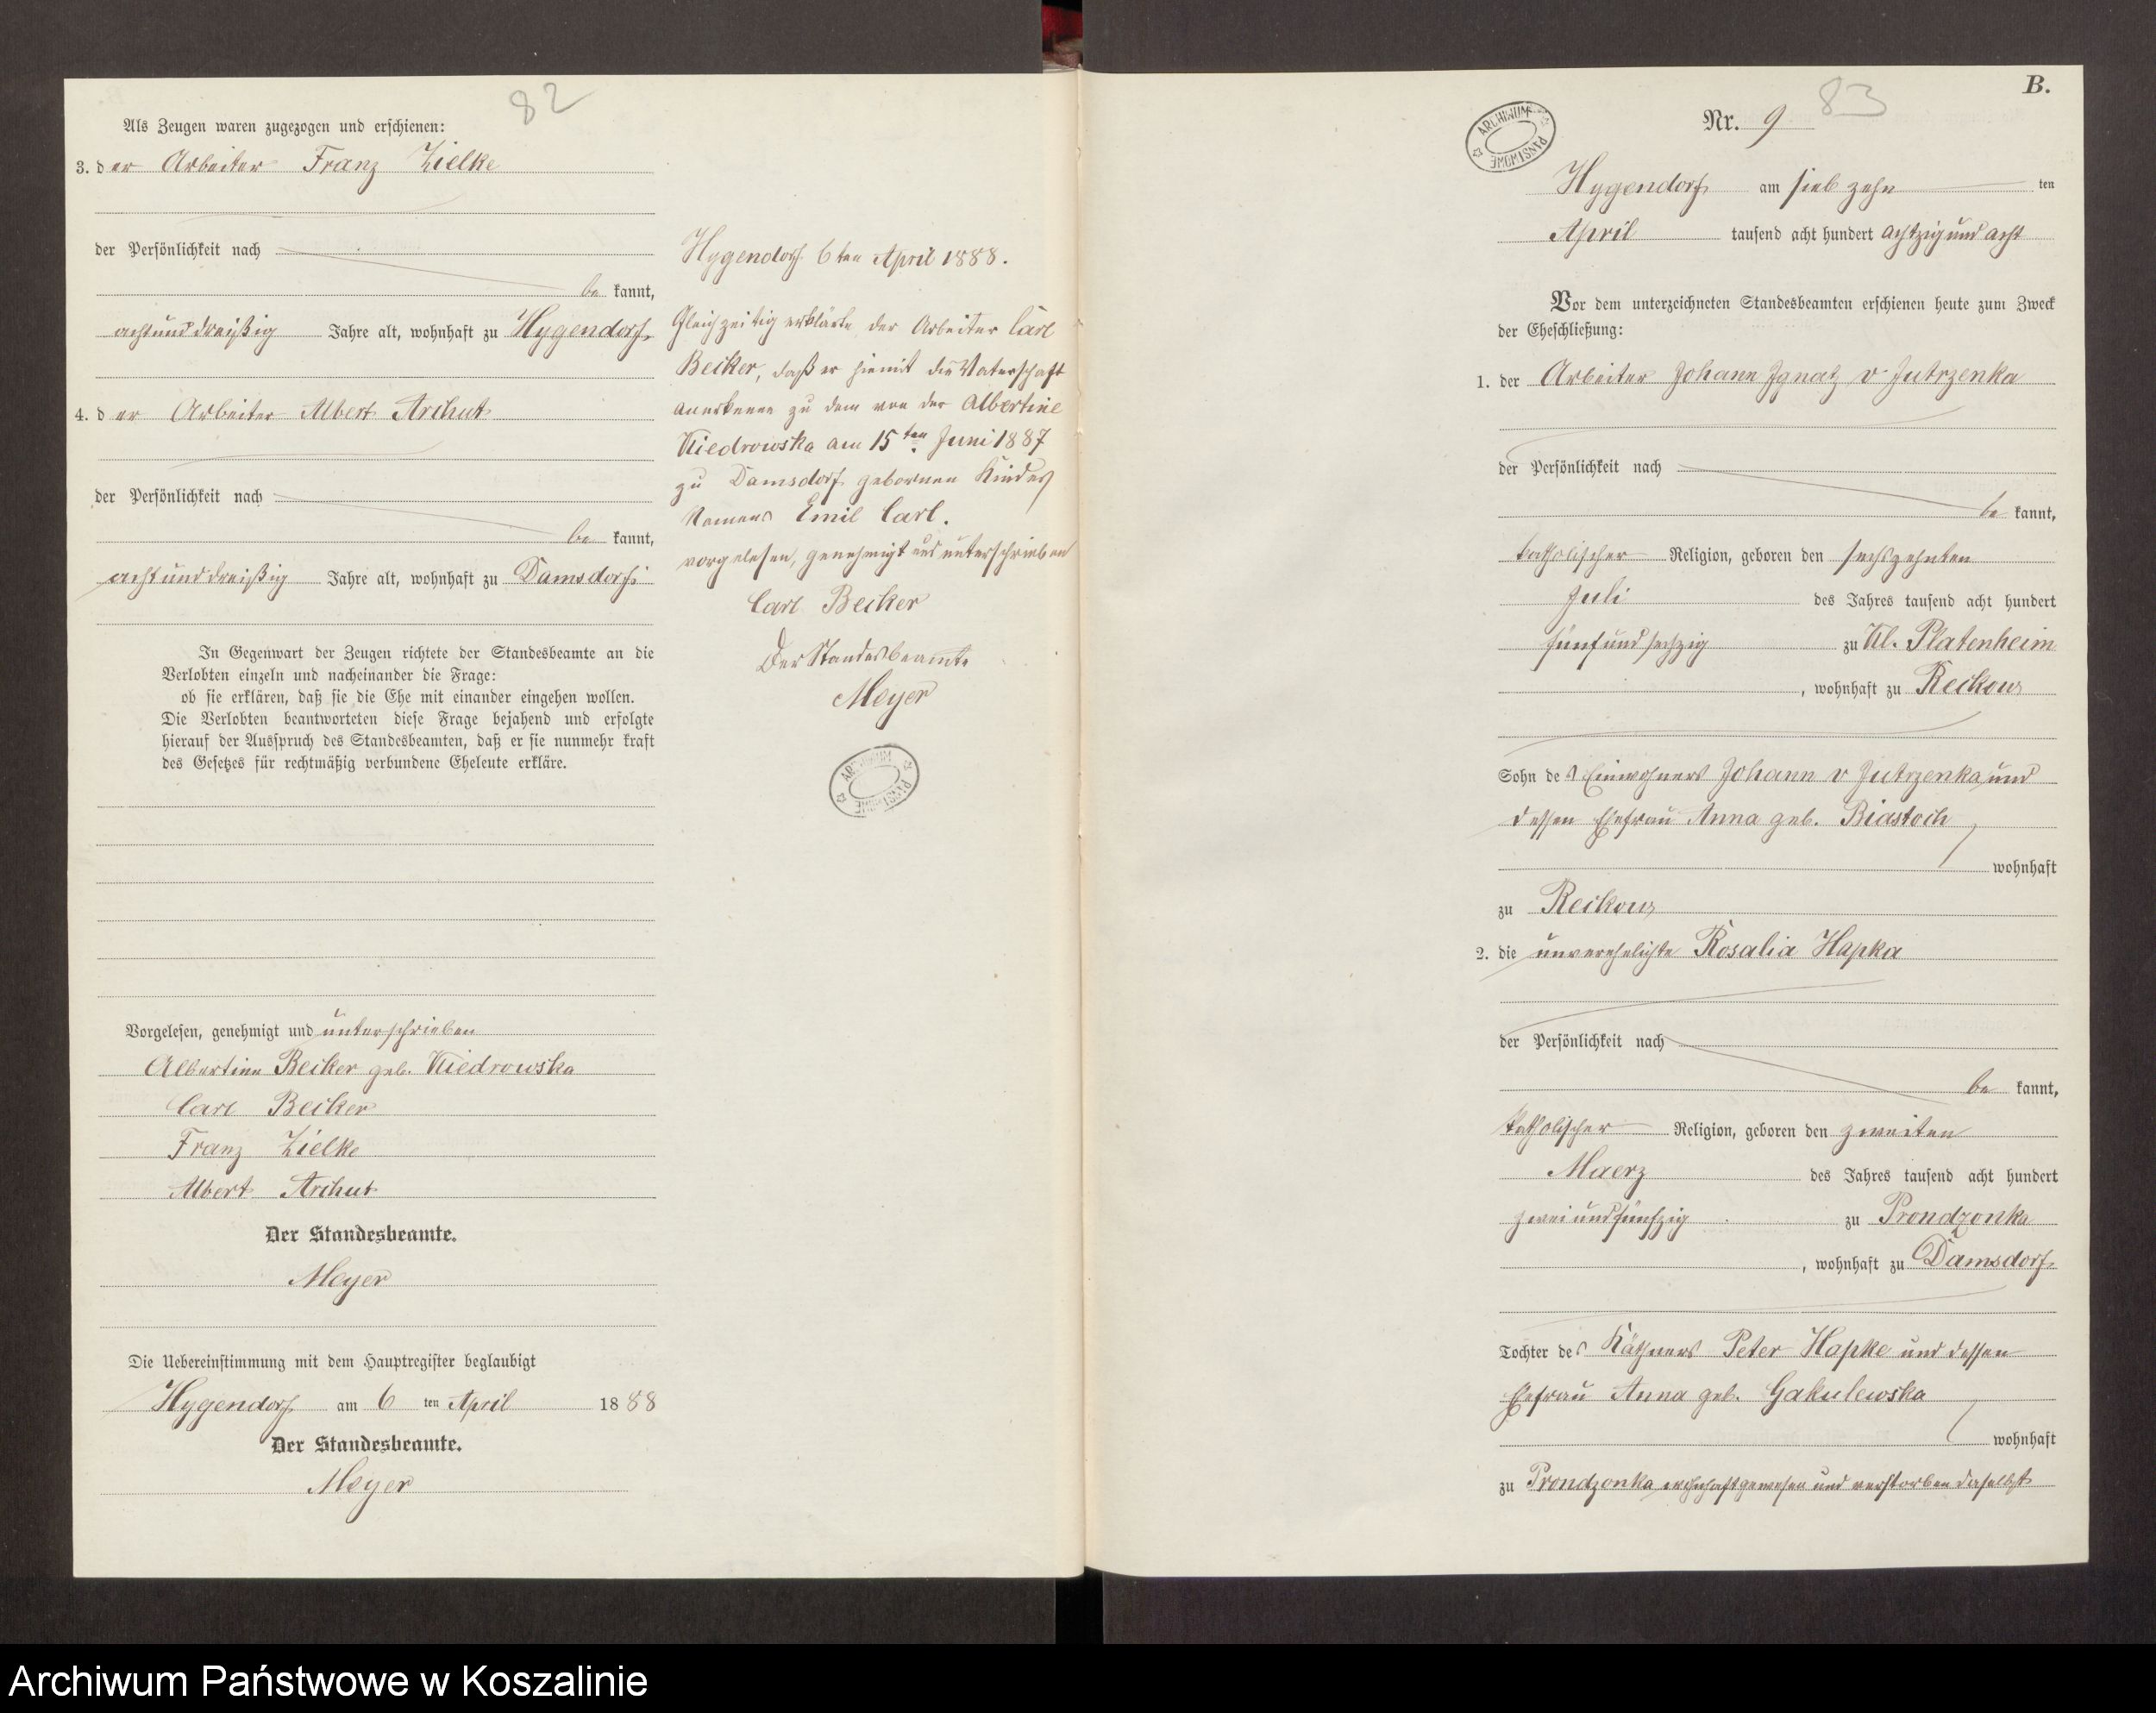 82
Als Zeugen waren zugezogen und erschienen:
3. der Arbeiter Franz Zielke
der Persönlichkeit nach
be kannt,
achtunddreißig Jahre alt, wohnhaft zu Hygendorf
4. der Arbeiter Albert Archut
der Persönlichkeit nach
be kannt,
achtunddreißig Jahre alt, wohnhaft zu Damsdorf
In Gegenwart der Zeugen richtete der Standesbeamte an die
Verlobten einzeln und nacheinander die Frage:
ob sie erklären, daß sie die Ehe mit einander eingehen wollen.
Die Verlobten beantworteten diese Frage bejahend und erfolgte
hierauf der Ausspruch des Standesbeamten, daß er sie nunmehr kraft
des Gesetzes für rechtmäßig verbundene Eheleute erkläre.
Vorgelesen, genehmigt und unterschrieben
Albertine Becker geb. Kiedrowska
Carl Becker
Franz Zielke
Albert Archut
Der Standesbeamte.
Meyer
Die Uebereinstimmung mit dem Hauptregister beglaubigt
Hygendorf am 6 ten April 1888
Der Standesbeamte.
Meyer
Hygendorf 6ten April 1888.
Gleichzeitig erklärte der Arbeiter Carl
Becker, daß er hiemit die Vaterschaft
anerkenne zu dem von der Albertine
Kiedrowska am 15ten Juni 1887
zu Damsdorf gebornen Kindes
Namens Emil Carl.
vorgelesen, genehmigt und unterschrieben
Carl Becker
Der Standesbeamte
Meyer
ARCHIWUM PAŃSTWOWE
B.
83
ARCHIWUM PAŃSTWOWE
Nr. 9
Hygendorf am siebzehn ten
April tausend acht hundert achtzig und acht
Vor dem unterzeichneten Standesbeamten erschienen heute zum Zweck
der Eheschließung:
1. der Arbeiter Johann Ignatz v Jutrzenka
der Persönlichkeit nach
be kannt,
katholischer Religion, geboren den sechszehnten
Juli des Jahres tausend acht hundert
fünfundsechzig zu Kl. Platenheim
, wohnhaft zu Reckow
Sohn des Einwohners Johann v Jutrzenka und
dessen Ehefrau Anna geb. Biastoch
wohnhaft
zu Reckow
2. die unverehelichte Rosalia Hapka
der Persönlichkeit nach
be kannt,
katholischer Religion, geboren den zweiten
Maerz des Jahres tausend acht hundert
zweiundfünfzig zu Prondzonka
, wohnhaft zu Damsdorf
Tochter des Käthners Peter Hapke und dessen
Ehefrau Anna geb. Gakulewska
wohnhaft
zu Prondzonka wohnhaft gewesen und verstorben daselbst
Archiwum Państwowe w Koszalinie